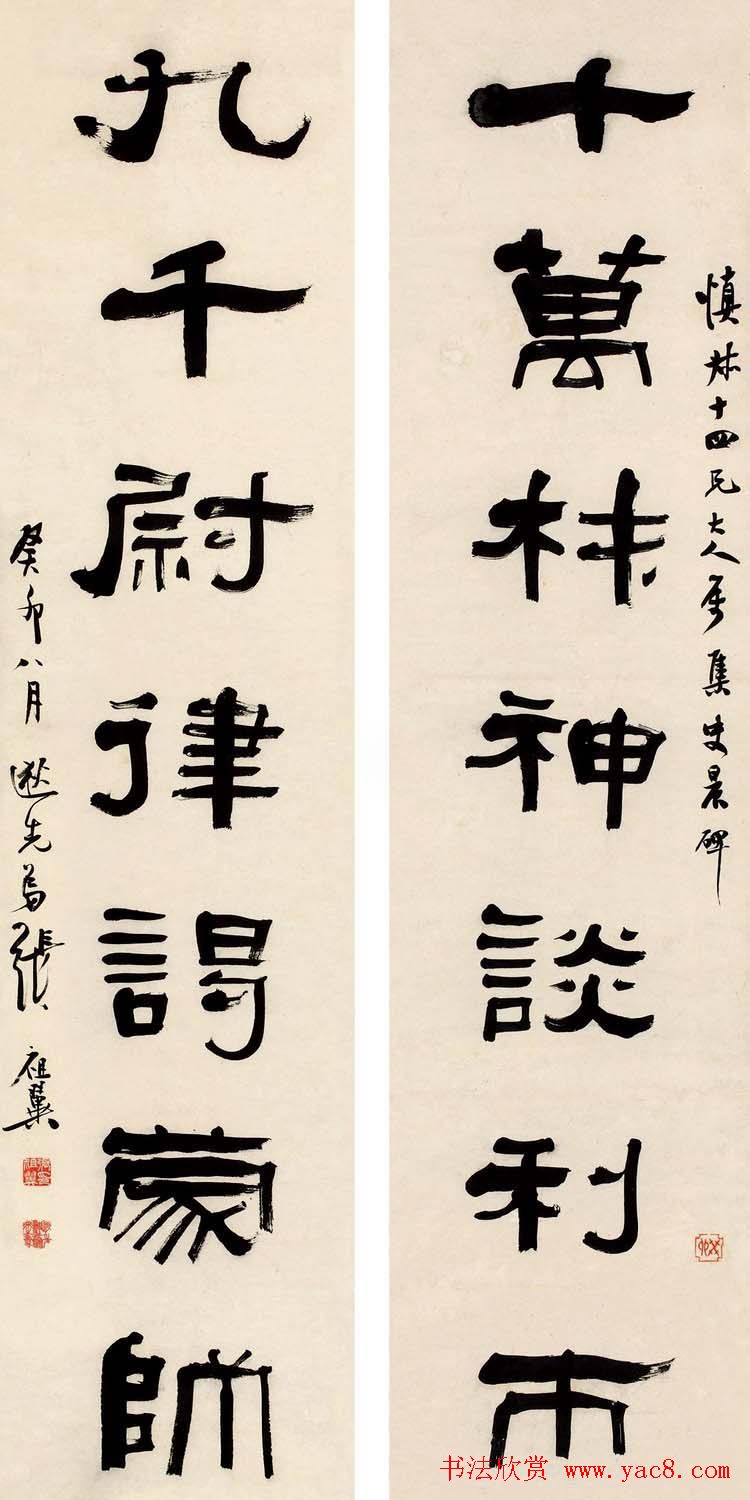 十萬材神談利市
慎十四兄大人属集史晨碑
九千尉律謁蒙師
癸卯八月逖先張祖翼
书法欣赏 www.yac8.com